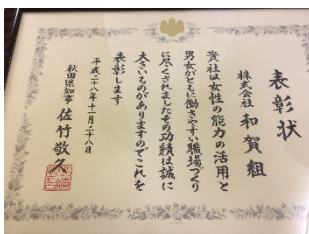 表彰状
株式会社 和賀組
貴社は女性の能力の活用と
男女がともに働きやすい職場づくり
に尽くされましたその功績は誠に
大きいものがありますのでこれを
表彰します
平成二十八年十一月二十八日
秋田県知事 佐竹敬久